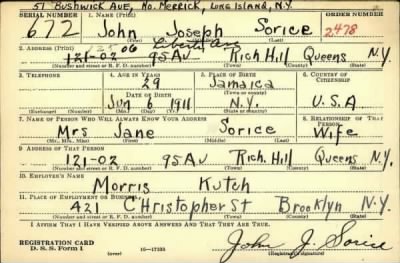 51 BUSHWICK AVE, NO. MERRICK, LONG ISLAND, N.Y.
SERIAL NUMBER 1. NAME (Print) ORDER NUMBER
672 John Joseph Sorice 2478
(First) (Middle) (Last)
06 Liberty Ave
2. ADDRESS (Print)
121-02 95 AV Rich. Hill Queens N.Y.
(Number and street or R. F. D. number) (Town) (County) (State)
3. TELEPHONE 4. AGE IN YEARS 5. PLACE OF BIRTH 6. COUNTRY OF CITIZENSHIP
29 Jamaica
DATE OF BIRTH (Town or county)
Jun 6 1911 N.Y. U.S.A
(Exchange) (Number) (Mo.) (Day) (Yr.) (State or country)
7. NAME OF PERSON WHO WILL ALWAYS KNOW YOUR ADDRESS 8. RELATIONSHIP OF THAT PERSON
Mrs Jane Sorice Wife
(Mr., Mrs., Miss) (First) (Middle) (Last)
9. ADDRESS OF THAT PERSON
121-02 95 AV Rich. Hill Queens N.Y.
(Number and street or R. F. D. number) (Town) (County) (State)
10. EMPLOYER'S NAME
Morris Kutch
11. PLACE OF EMPLOYMENT OR BUSINESS
421 Christopher St Brooklyn N.Y.
(Number and street or R. F. D. number) (Town) (County) (State)
I AFFIRM THAT I HAVE VERIFIED ABOVE ANSWERS AND THAT THEY ARE TRUE.
REGISTRATION CARD
D. S. S. Form 1 16—17105 John J. Sorice